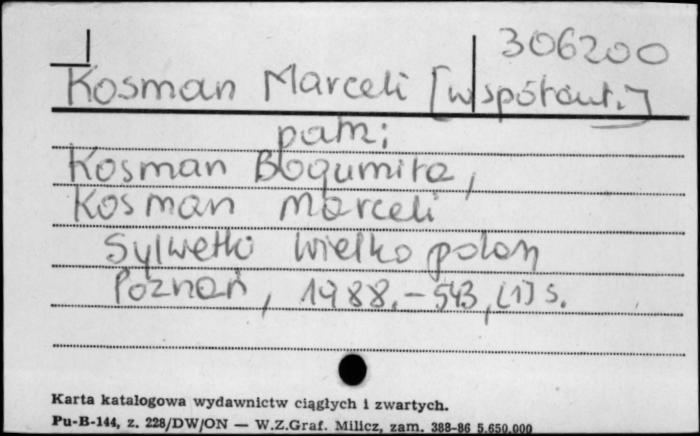 306200
Kosman Marceli [współaut.]
patrz:
Kosman Bogumiła,
Kosman Marceli
Sylwetki Wielkopolan
Poznań, 1988. - 543, [1] s.
Karta katalogowa wydawnictw ciągłych i zwartych.
Pu-B-144, z. 228/DW/ON — W.Z.Graf. Milicz, zam. 388-86 5.650.000